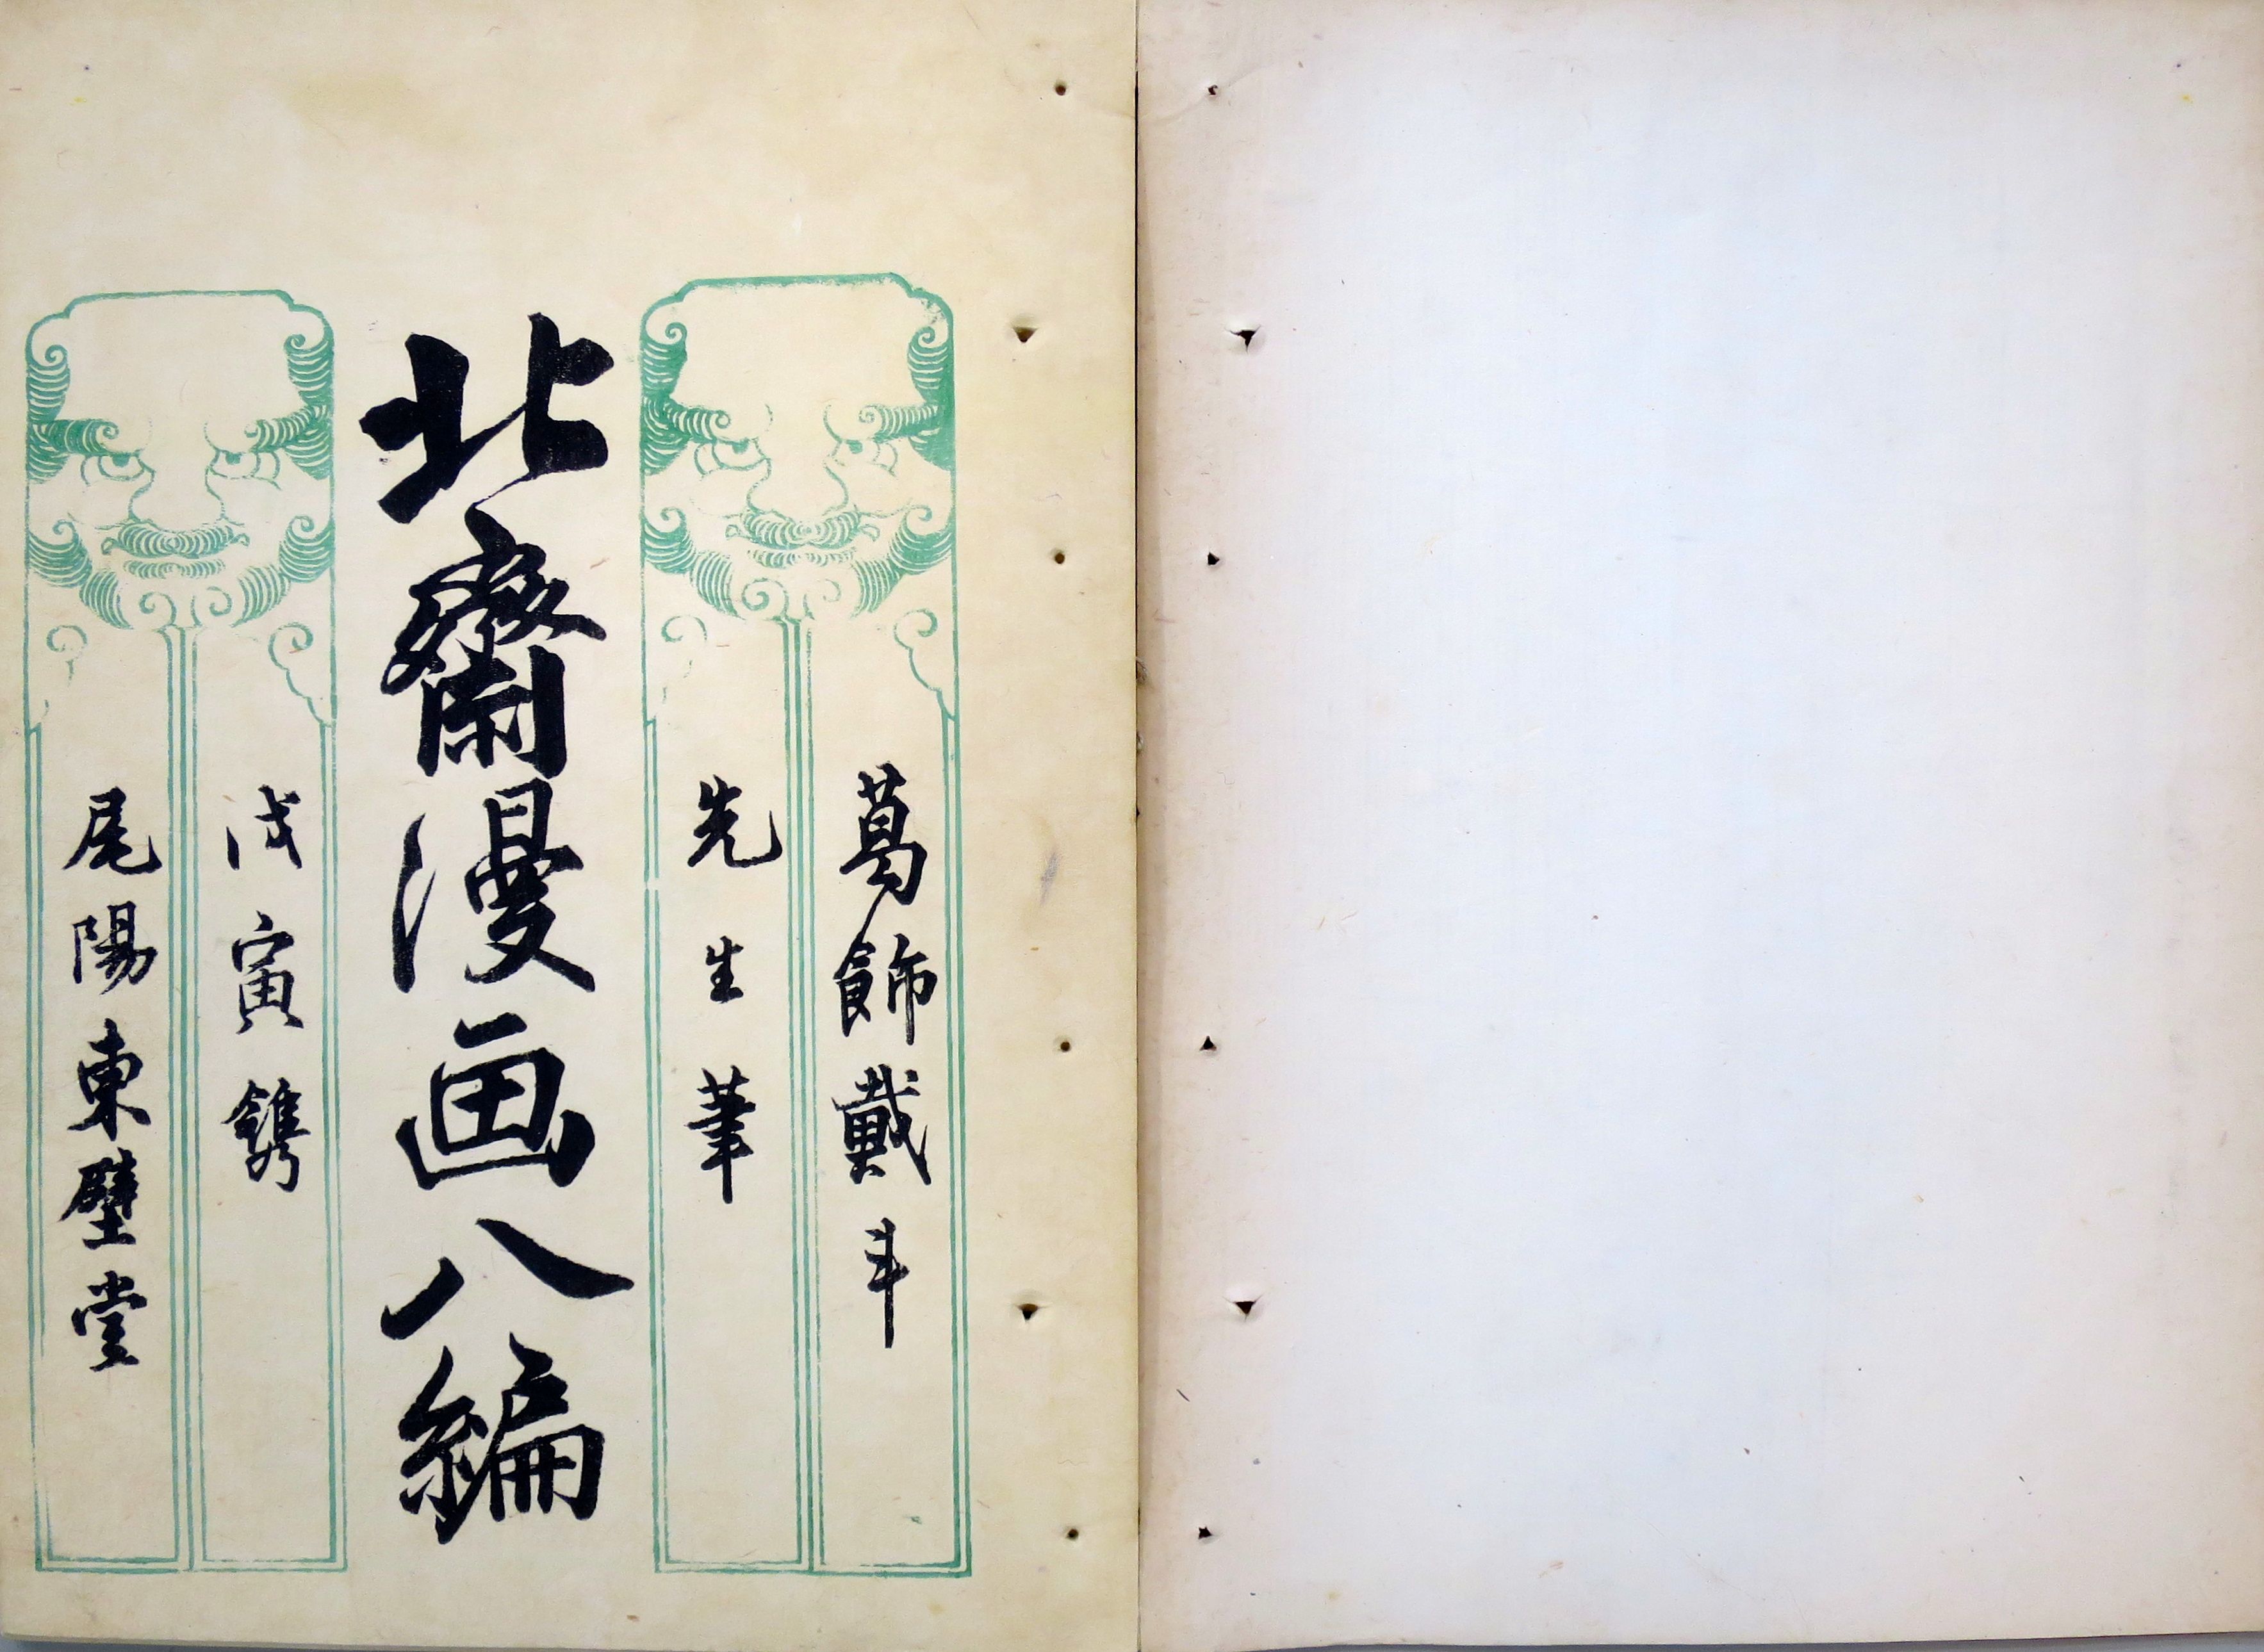 葛飾戴斗
先生筆
北齋漫画八編
戊寅鐫
尾陽東壁堂